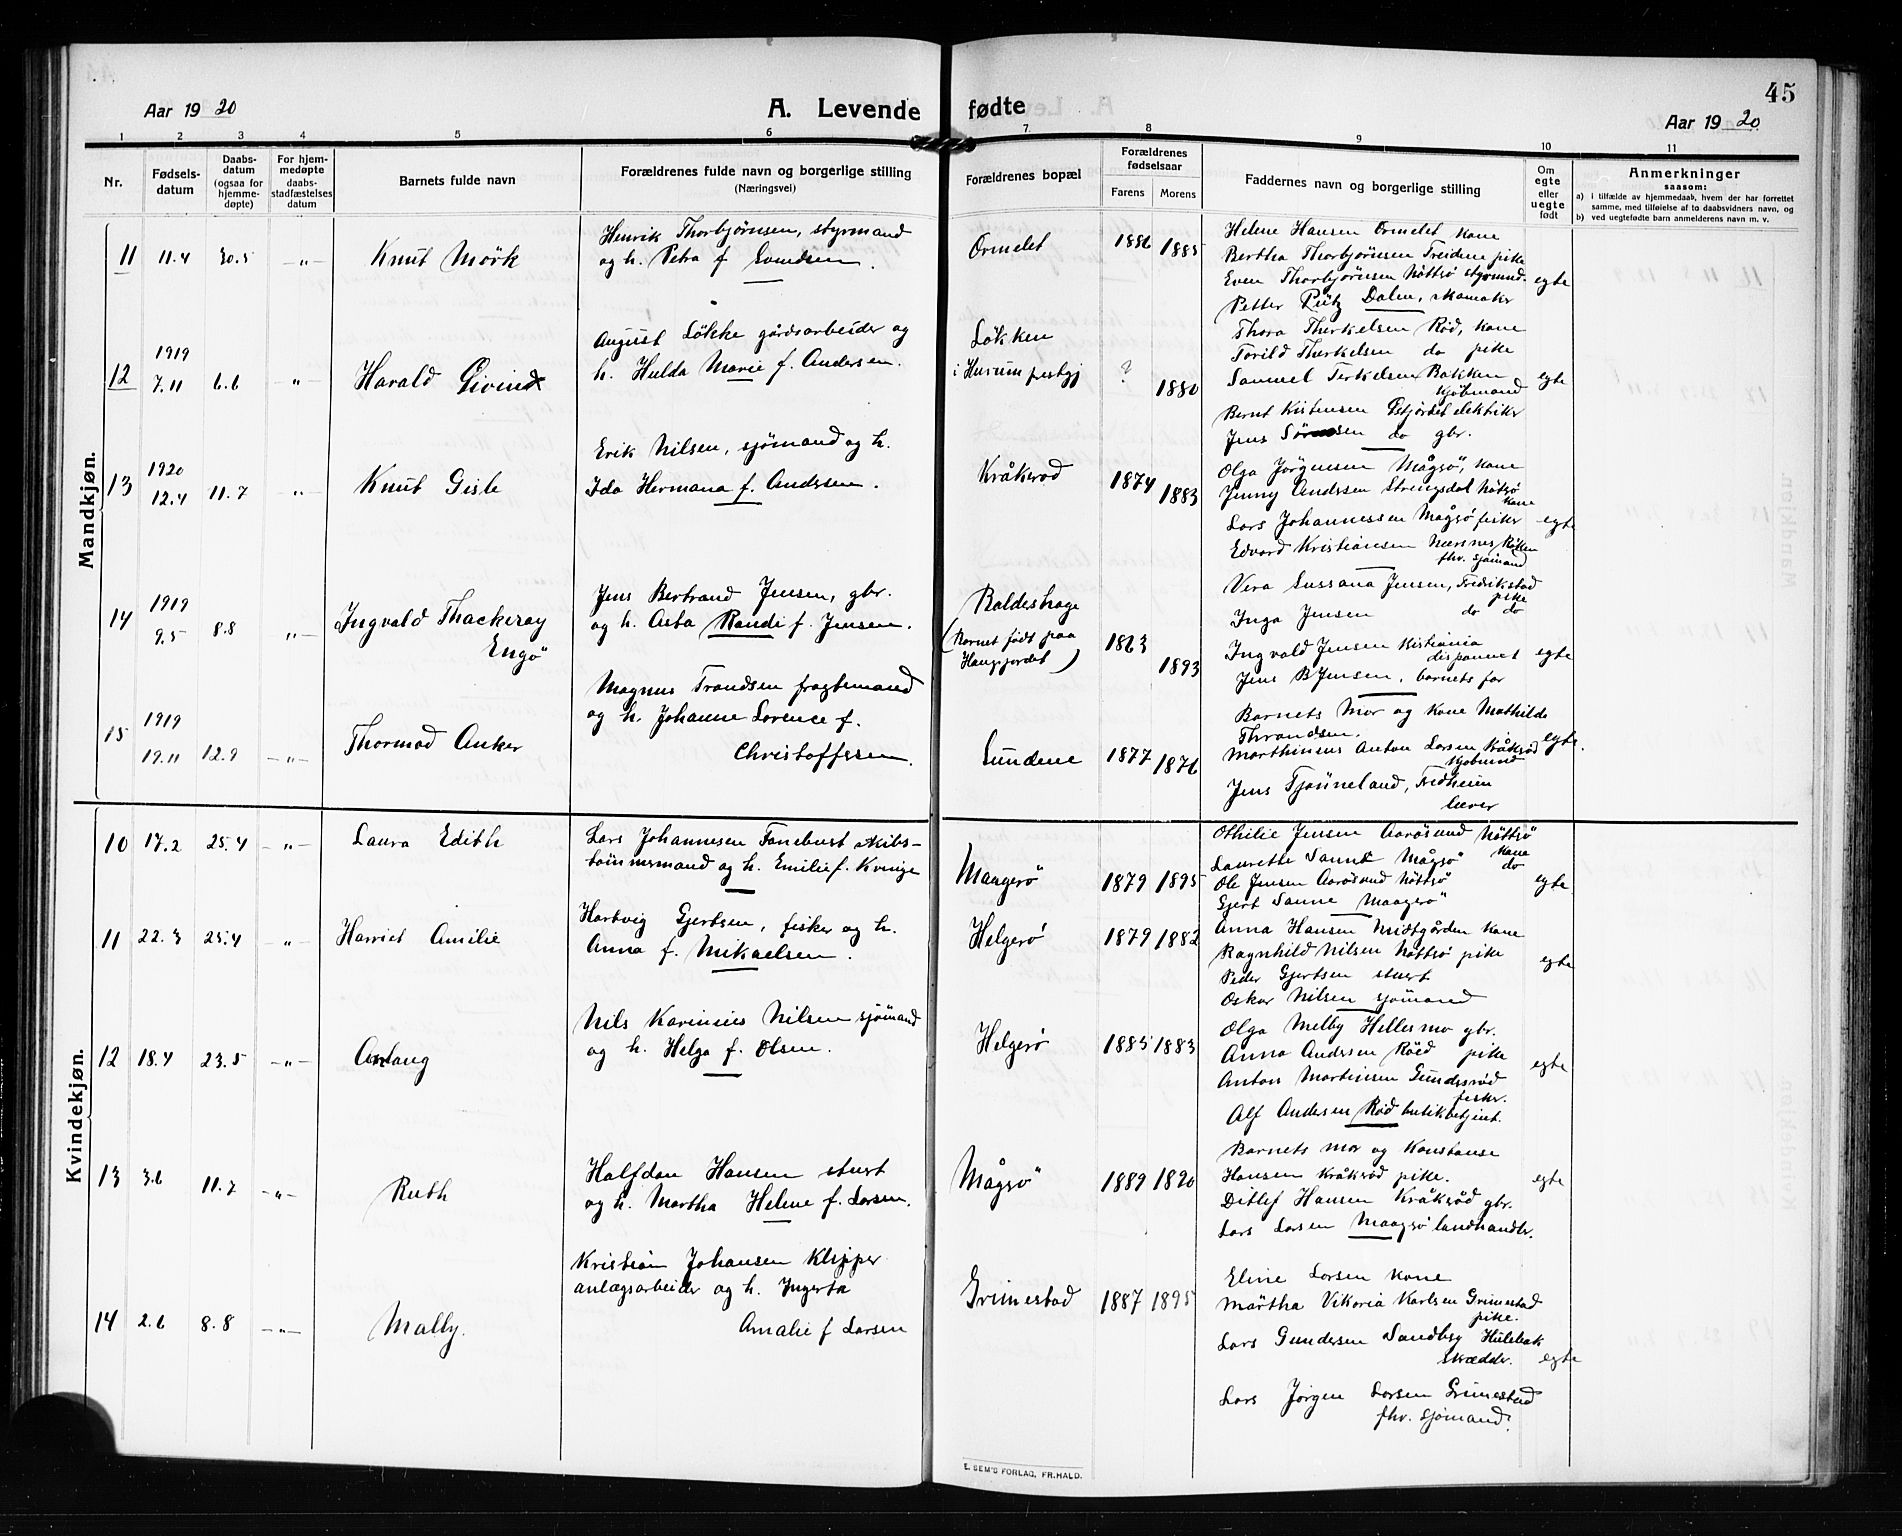 45
Aar 1920
A. Levende fødte
Aar 1920
1 2 3 4 5 6 7 8 9 10 11
Nr.
Fødsels-
datum
Daabs-
datum
(ogsaa for
hjemme-
døpte)
For hjem-
medøpte
daabs-
stadfæstelses
datum
Barnets fulde navn
Forældrenes fulde navn og borgerlige stilling
(Næringsvei)
Forældrenes bopæl
Forældrenes
fødselsaar
Farens Morens
Faddernes navn og borgerlige stilling
Om
egte
eller
uegte
født
Anmerkninger
saasom:
a) i tilfælde av hjemmedaab, hvem der har forrettet
samme, med tilføielse af to daabsvidners navn, og
b) ved uegtefødte barn anmelderens navn m. v.
Mandkjøn.
11 11.4 30.5 -„- Knut Mørk
Henrik Thorbjørnsen, styrmand
og h. Petra f. Svendsen.
Ormelet 1886 1885
Helene Hansen Ormelet kone
Bertha Thorbjørnsen Treidene pike
Even Thorbjørnsen Nøttrø styrmnd.
Petter Pütz Dalen, skomaker
egte
12 1919
7.11 6.6 „ Harald Eivind
August Løkke gårdsarbeider og
h. Hulda Marie f. Andersen.
Løkken
i Hurum prestgj ? 1880
Thora Therkelsen Rød, kone
Torild Therkelsen do pike
Samuel Terkelsen Bakken
kjøbmand
Bernt Kristensen elektriker
Jens Sørensen do gbr.
egte
13 1920
12.4 11.7 -„- Knut Gisle
Erik Nilsen, sjømand og h.
Ida Hermana f. Andersen.
Kråkerød 1874 1883
Olga Jørgensen Mågrø, kone
Jenny Andersen Strengsdal Nøtrø
kone
Lars Johannessen Mågrø fisker
Edvard Kristiansen Nærsnes Røken
fhv. sjømand
egte
14 1919
9.5 8.8 „ Ingvald Thackeray
Engø
Jens Bertrand Jensen, gbr.
og h. Asta Randi f. Jensen.
Boldeshage
(Barnet født paa
Haugfjordet) 1863 1893
Vera Sussana Jensen, Fredrikstad
pike
Inga Jensen do do
Ingvald Jensen Kristiania
disponent
Jens B Jensen, barnets far
egte
15 1919
19.11 12.9 -„- Thormod Anker
Magnus Trandsen fragtemand
og h. Johanne Lorence f.
Christoffersen.
Sundene 1877 1876
Barnets Mor og Kone Mathilde
Thrandsen.
Marthinius Anton Larsen Kråkrød
kjøbmnd
Jens Tjønneland, Fredheim
lærer
egte.
Kvindekjøn.
10 17.2 25.4 -„- Laura Edith
Lars Johannesen Tanebust skibs-
tømmermand og h. Emilie f. Kvinge
Maagerø 1879 1895
Othilie Jensen Aarøsund Nøttrø
kone
Laurette Sanne Mågrø do
Ole Jensen Aarøsund Nøttrø
Gjert Sanne Maagerø
egte
11 22.3 25.4 „ Harriet Amilie
Hartvig Gjertsen, fisker og h.
Anna f. Mikaelsen.
Helgerø 1879 1882
Anna Hansen Midtgården kone
Ragnhild Nilsen Nøttrø pike
Peder Gjertsen stuert
Oskar Nilsen sjømand
egte
12 18.4 23.5 -„- Aslaug
Nils Karinius Nilsen sjømand
og h. Helga f. Olsen.
Helgerø 1885 1883
Olga Melby Hellesmo gbr.
Anna Andersen Røed pike
Anton Martinsen Gundersrød
fisker.
Alf Andersen Rød butikbetjent.
egte
13 3.6 11.7 -„- Ruth
Halfdan Hansen stuert
og h. Martha Helene f. Larsen.
Mågrø 1889 1890
Barnets mor og Konstanse
Hansen Kråkrød pike.
Ditlef Hansen Kråkrød gbr.
Lars Larsen Maagrø landhandlr.
egte
14 2.6 8.8 -„- Mally.
Kristian Johansen Klipper
anlægsarbeider og h. Ingerta
Amalie f Larsen
Grimestad 1887 1895
Eline Larsen kone
Martha Vikoria Karlsen Grimestad
pike.
Lars Gundersen Sandbeg Hulebak
skrædder.
Lars Jørgen Larsen Grimestad
fhv. sjømand.
egte
E. SEM'S FORLAG, FR.HALD.